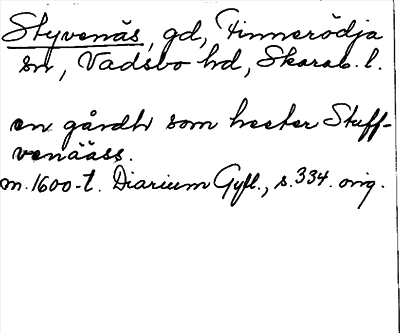 Styvenäs, gd, Finnerödja
sn, Vadsbo hd, Skarab. l.
en gårdh som heeter Stuff-
venääss.
m. 1600-t. Diarium Gyll., s. 334. orig.